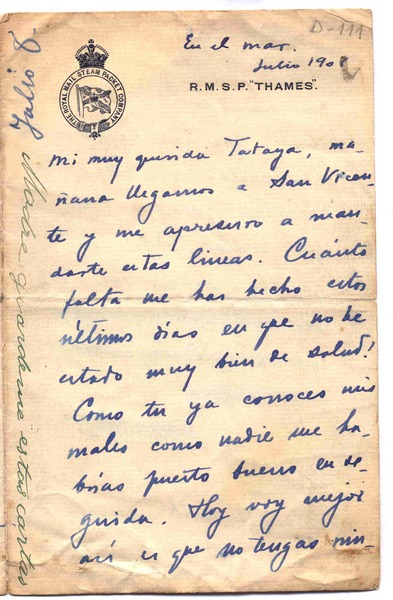 D-111
En el mar.
Julio 190
R.M.S.P. "THAMES".
THE ROYAL MAIL STEAM PACKET COMPANY
Mi muy querida Tataya, ma-
ñana llegamos a San Vicen-
te y me apresuro a man-
darte estas líneas. Cuánto
falta me has hecho estos
últimos días en que no he
estado muy bien de salud!
Como tu ya conoces mis
males como nadie me ha-
brias puesto bueno en se-
guida. Hoy voy mejor
asi es que no tengas nin-
Julio 8.
Madre guardeme estas cartas